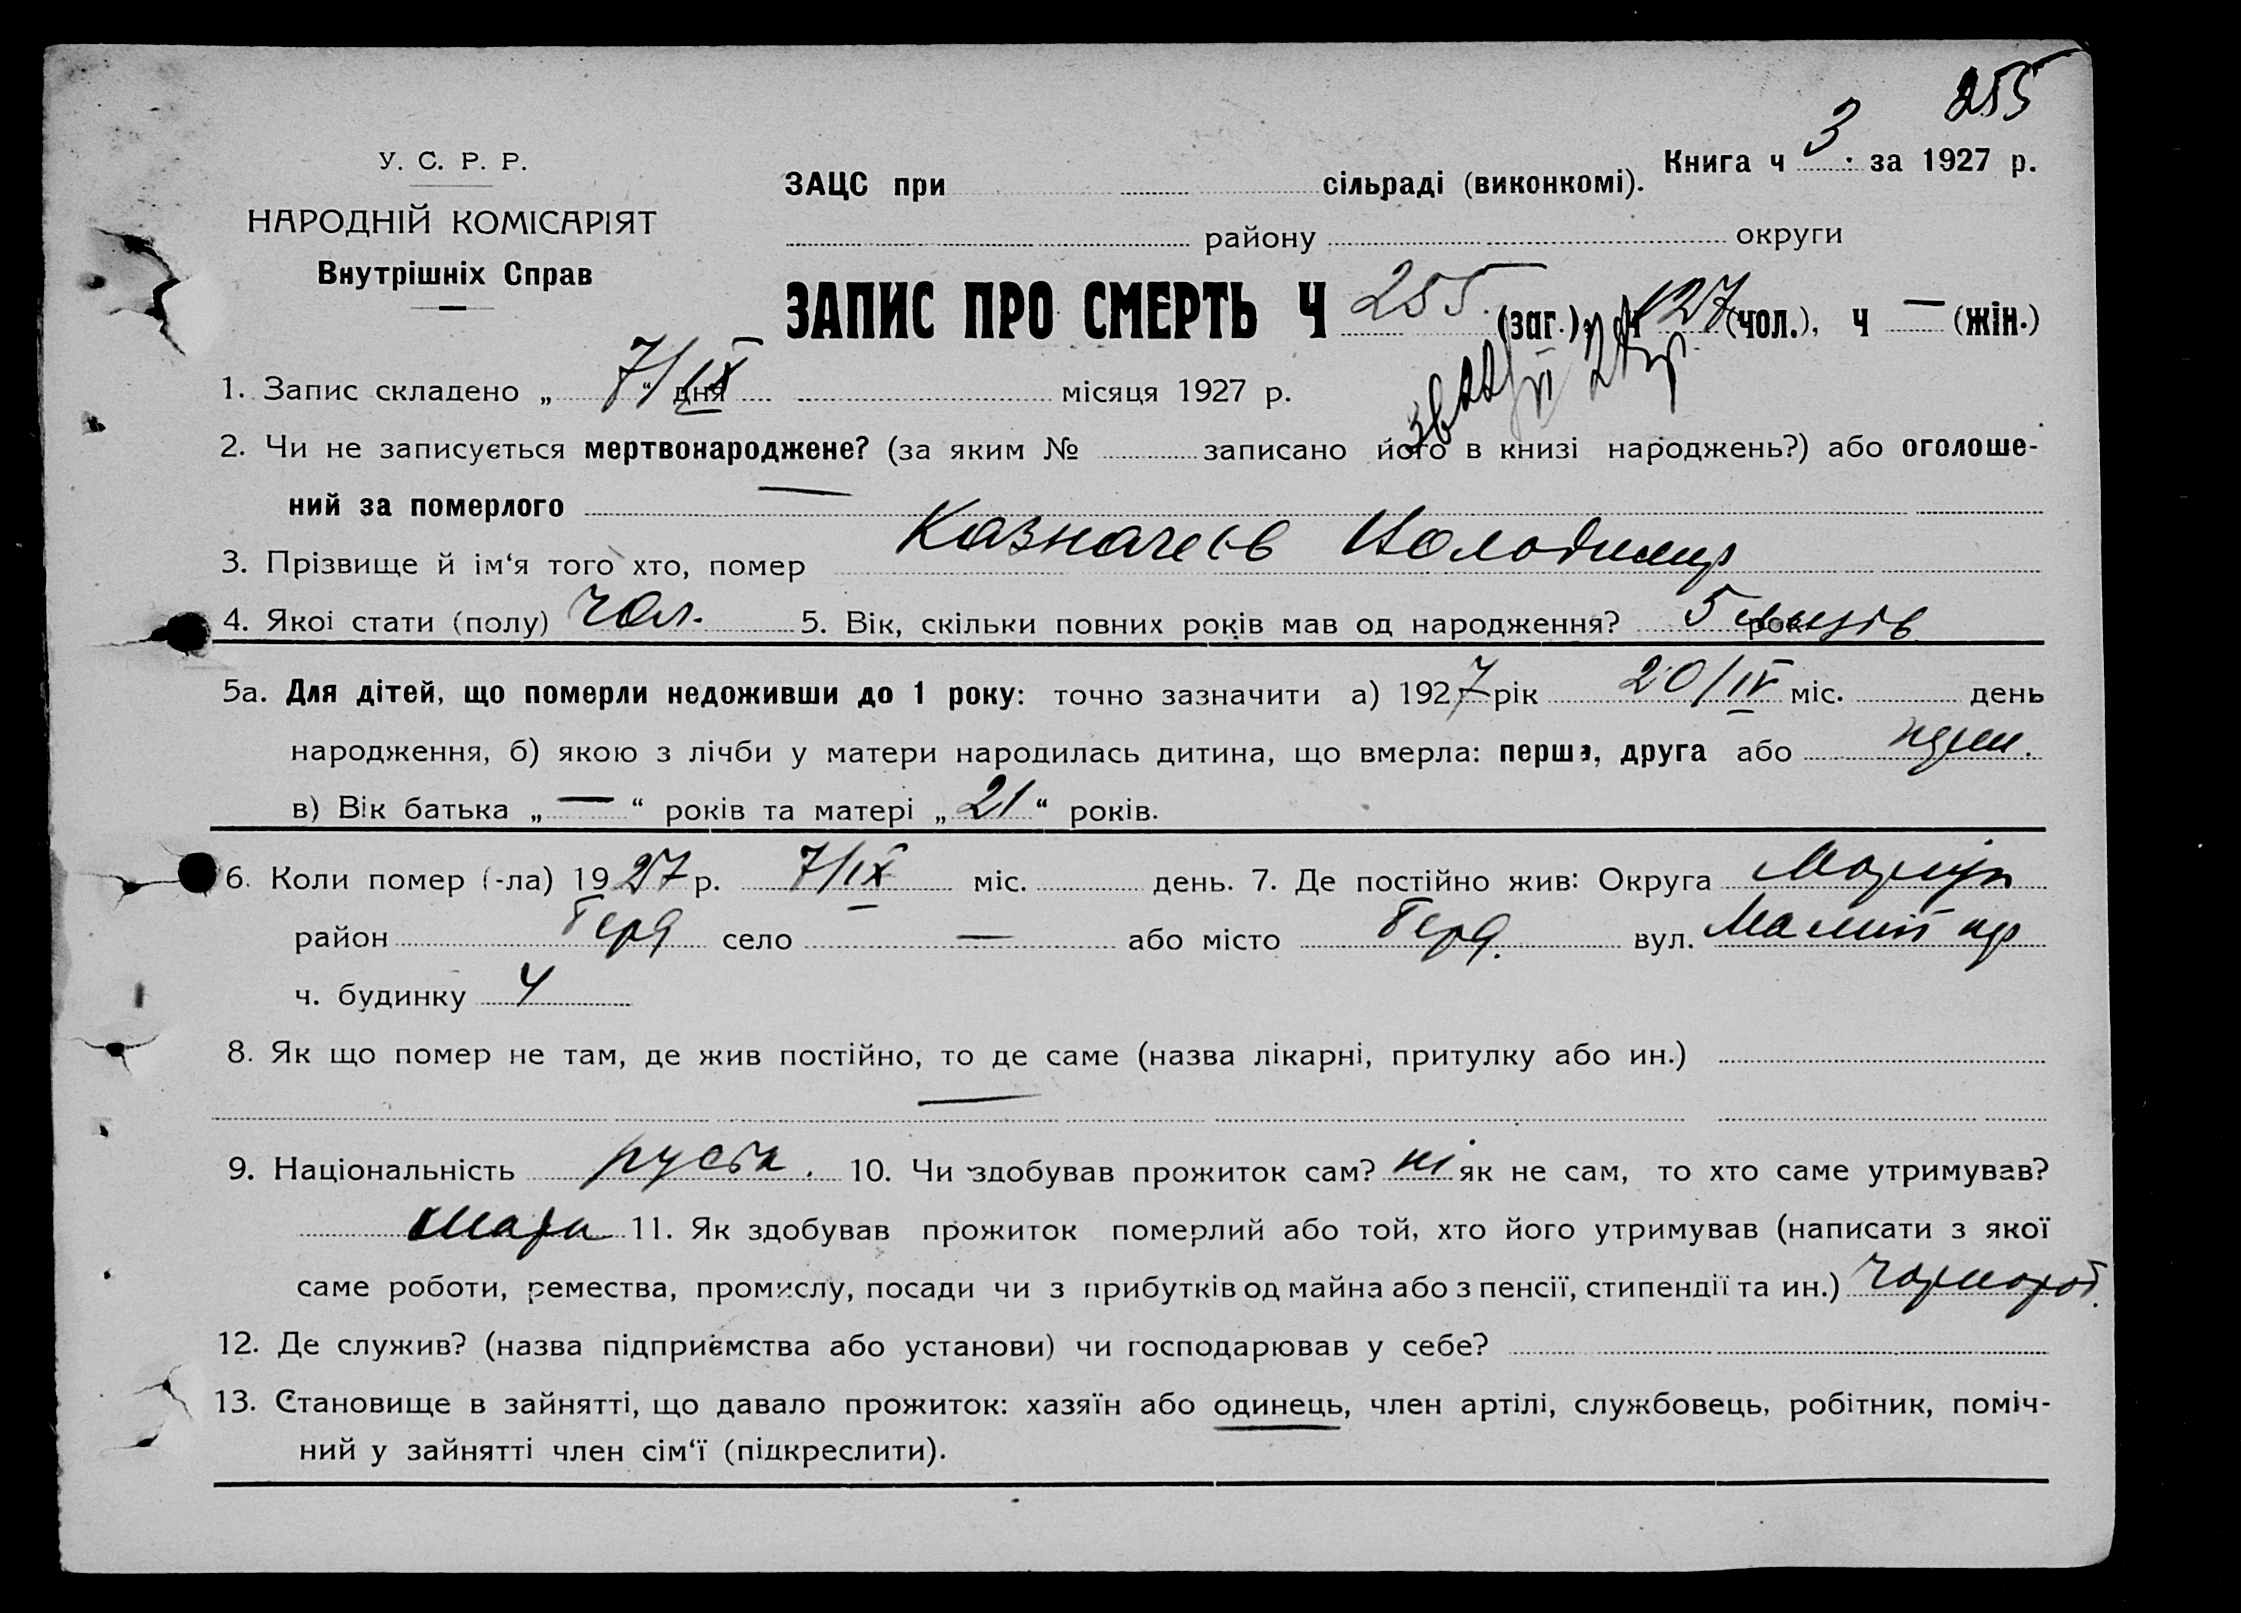 255
У. С. Р. Р.
НАРОДНІЙ КОМІСАРІЯТ
Внутрішніх Справ
Книга ч 3 за 1927 р.
ЗАЦС при сільраді (виконкомі).
району округи
ЗАПИС ПРО СМЕРТЬ Ч 255 (заг.), ч 127 (чол.), ч — (жін.)
1. Запис складено „ 7/IX “ дня місяця 1927 р.
2. Чи не записується мертвонароджене? (за яким № записано його в книзі народжень?) або оголоше-
ний за померлого —
3. Прізвище й ім‘я того хто, помер Казначеєв Володимир
4. Якоі стати (полу) Чол. 5. Вік, скільки повних років мав од народження? 5 місяців
5а. Для дітей, що померли недоживши до 1 року: точно зазначити а) 1927 рік 20/IV міс. день
народження, б) якою з лічби у матери народилась дитина, що вмерла: перша, друга або
в) Вік батька „ — “ років та матері „ 21 “ років.
6. Коли помер (-ла) 1927 р. 7/IX міс. день. 7. Де постійно жив: Округа Маріуп
район Берд село — або місто Берд. вул. Малий пр
ч. будинку 4
8. Як що помер не там, де жив постійно, то де саме (назва лікарні, притулку або ин.)
—
9. Національність руська. 10. Чи здобував прожиток сам? ні як не сам, то хто саме утримував?
мати 11. Як здобував прожиток померлий або той, хто його утримував (написати з якої
саме роботи, ремества, промислу, посади чи з прибутків од майна або з пенсії, стипендії та ин.) чорнороб.
12. Де служив? (назва підприємства або установи) чи господарював у себе?
13. Становище в зайнятті, що давало прожиток: хазяїн або одинець, член артілі, службовець, робітник, поміч-
ний у зайнятті член сім‘ї (підкреслити).